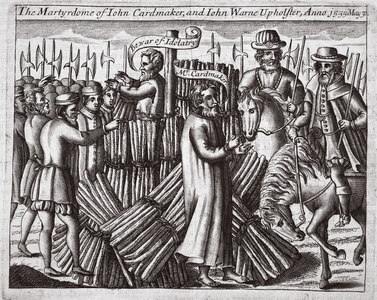 The Martyrdome of Iohn Cardmaker, and Iohn Warne Upholster, Anno
Bewar of Idolatry
Mr. Cardmaker